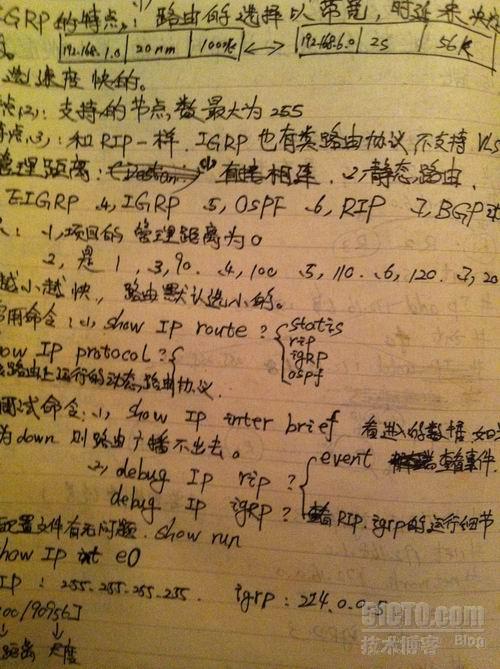 IGRP的特点: 路由的选择以带宽,时延来决
192.168.1.0 20mm 1000k ←→ 192.168.6.0 2S 56k
选速度快的。
点,2,: 支持的节点数最大为255
特点,3,: 和RIP一样. IGRP也有类路由协议不支持VLS
管理距离: 1,直接相连. 2,静态路由.
EIGRP .4,IGRP .5,OSPF .6,RIP 7,BGP
: 1,项目的管理距离为0
2,是1, .3,90. .4,100 .5,110. .6,120. 7,20
越小越快, 路由默认选小的。
常用命令: 1, show IP route? { statis
rip
igRP
ospf
how IP protocol? {
路由上运行的动态路由协议.
调试命令: 1, show IP inter brief 看进入的数据 如
为down 则路由广播不出去。
2, debug Ip rip ? { event 查看事件.
debug Ip igRP? 查看RIP. igrp的运行细节
配置文件有无问题. show run
how IP int e0
IP : 255.255.255.255. igrp: 224.0.0.5
100/90956]
↓ ↓
距离 大度
51CTO.com
技术博客 Blog